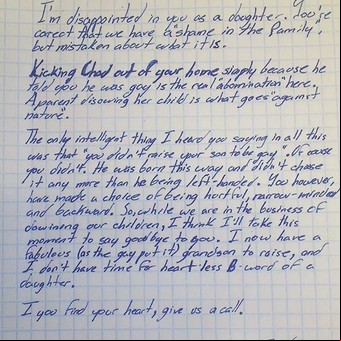 I'm disappointed in you as a daughter. You're
corect that we have a "shame in the family",
but mistaken about what it is.
Kicking Chad out of your home simply because he
told you he was gay is the real "abomination" here.
A parent disowing her child is what goes "against
nature".
The only intelligent thing I heard you saying in all this
was that "you didn't raise your son to be gay". Of couse
you didn't. He was born this way and didn't choose
it any more than he being left-handed. You however,
have made a choice of being hurtful, narrow-minded
and backward. So, while we are in the business of
disowning our children, I think I'll take this
moment to say goodbye to you. I now have a
fabulous (as the gay put it) grandson to raise, and
I don't have time for heart-less B-word of a
daughter.
I you find your heart, give us a call.